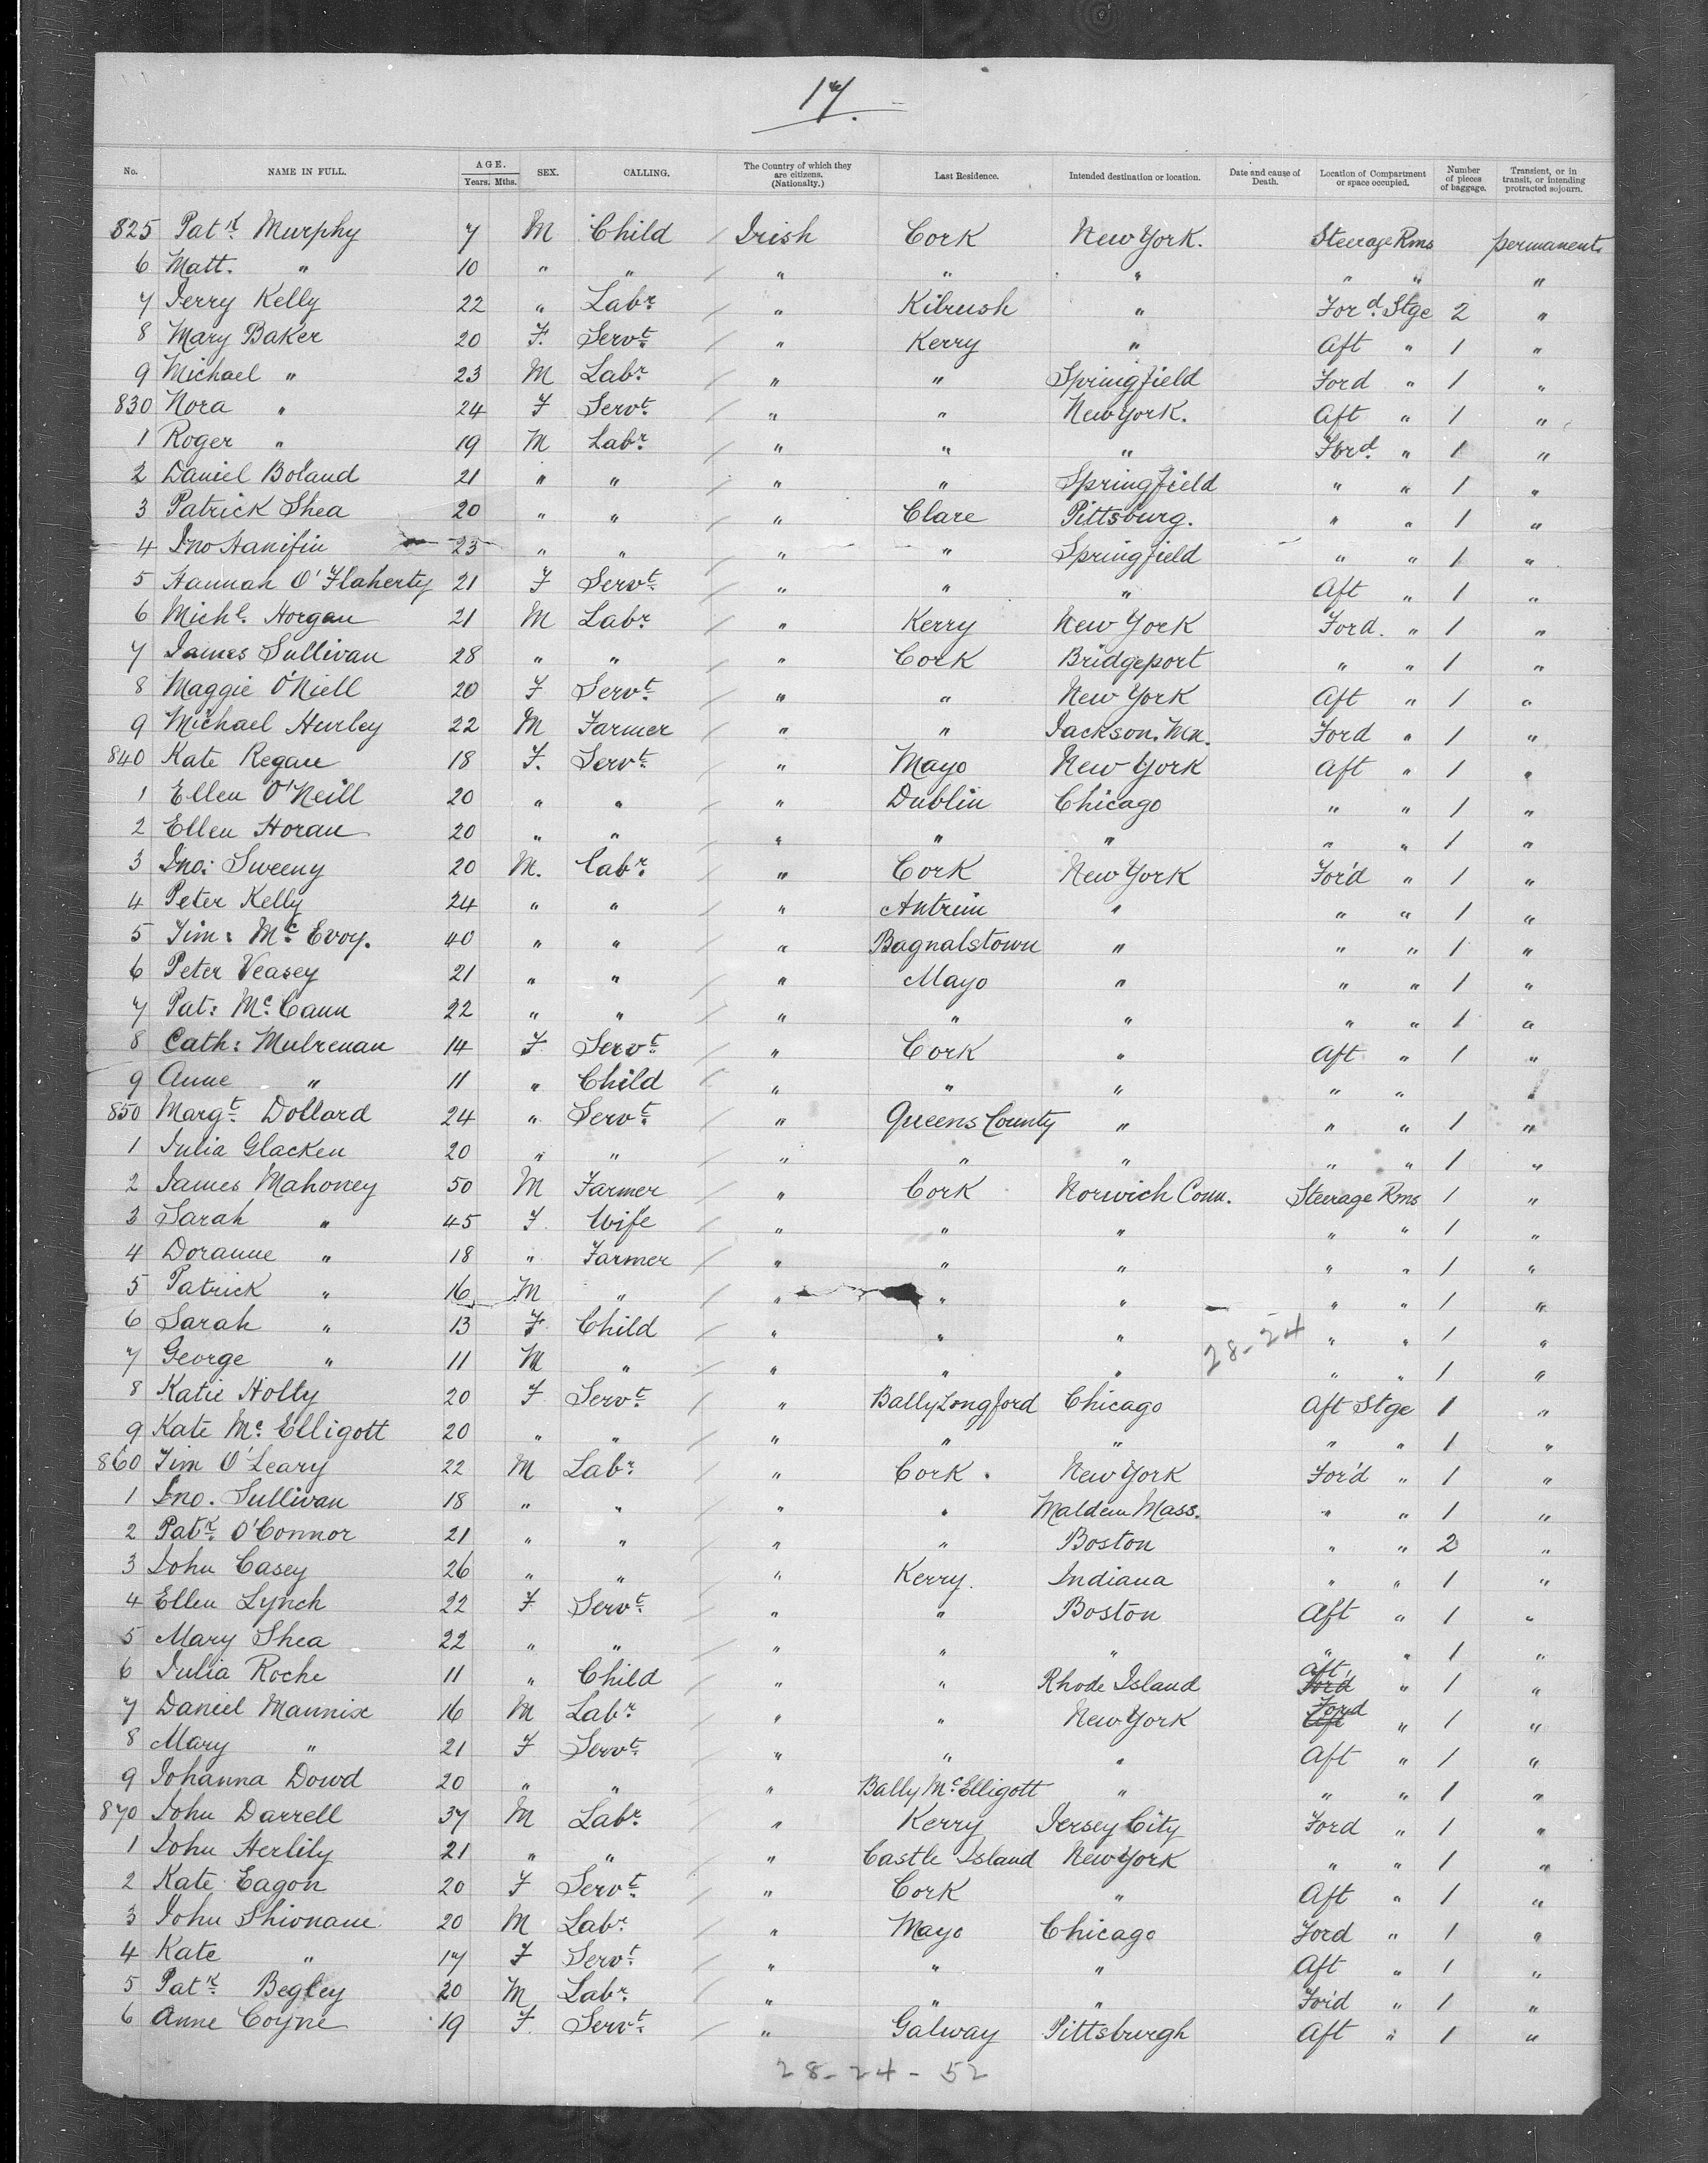 17.
No. NAME IN FULL. AGE. Years. Mths. SEX. CALLING. The Country of which they are citizens. (Nationalty.) Last Residence. Intended destination or location. Date and cause of Death. Location of Compartment or space occupied. Number of pieces of baggage. Transient, or in transit, or intending protracted sojourn.
825 Patk. Murphy 7 M Child / Irish Cork New York. Steerage Rms permanent
6 Matt. " 10 " " / " " " " " "
7 Jerry Kelly 22 " Labr. / " Kilrush " Ford. Stge 2 "
8 Mary Baker 20 F. Servt. / " Kerry " Aft " 1 "
9 Michael " 23 M Labr. / " " Springfield Ford " 1 "
830 Nora " 24 F Servt. / " " New York. Aft " 1 "
1 Roger " 19 M Labr. / " " " Ford. " 1 "
2 Daniel Boland 21 " " / " " Springfield " " 1 "
3 Patrick Shea 20 " " / " Clare Pittsburg. " " 1 "
4 Jno Hanifin 23 " " / " " Springfield " " 1 "
5 Hannah O'Flaherty 21 F Servt. / " " " Aft " 1 "
6 Michl. Horgan 21 M Labr. / " Kerry New York Ford. " 1 "
7 James Sullivan 28 " " / " Cork Bridgeport " " 1 "
8 Maggie O'Niell 20 F Servt. / " " New York Aft " 1 "
9 Michael Hurley 22 M Farmer / " " Jackson. Ford " 1 "
840 Kate Regan 18 F. Servt. / " Mayo New York Aft " 1 "
1 Ellen O'Neill 20 " " / " Dublin Chicago " " 1 "
2 Ellen Horan 20 " " / " " " " " 1 "
3 Jno: Sweeny 20 M. Labr. / " Cork New York For'd " 1 "
4 Peter Kelly 24 " " / " Antrim " " " 1 "
5 Jim: Mc. Evoy. 40 " " / " Bagnalstown " " " 1 "
6 Peter Veasey 21 " " / " Mayo " " " 1 "
7 Pat: Mc. Cann 22 " " / " " " " " 1 "
8 Cath: Mulrenan 14 F Servt. / " Cork " Aft " 1 "
9 Anne " 11 " Child / " " " " " "
850 Margt. Dollard 24 " Servt. / " Queens County " " " 1 "
1 Julia Glacken 20 " " / " " " " " 1 "
2 James Mahoney 50 M Farmer / " Cork Norwich Conn. Steerage Rms 1 "
3 Sarah " 45 F. Wife / " " " " " 1 "
4 Doranne " 18 " Farmer / " " " " " 1 "
5 Patrick " 16 M " / " " " " " 1 "
6 Sarah " 13 F Child / " " " 28-24 " " 1 "
7 George " 11 M " / " " " " " 1 "
8 Katie Holly 20 F Servt. / " Bally Longford Chicago Aft Stge 1 "
9 Kate Mc. Elligott 20 " " / " " " " " 1 "
860 Jim O'Leary 22 M Labr. / " Cork. New York For'd " 1 "
1 Jno. Sullivan 18 " " / " " Malden Mass. " " 1 "
2 Patk. O'Connor 21 " " / " " Boston " " 2 "
3 John Casey 26 " " / " Kerry. Indiana " " 1 "
4 Ellen Lynch 22 F Servt. / " " Boston Aft " 1 "
5 Mary Shea 22 " " / " " " " " 1 "
6 Julia Roche 11 " Child / " " Rhode Island Aft For'd " 1 "
7 Daniel Mannix 16 M Labr. / " " New York Ford Aft " 1 "
8 Mary " 21 F Servt. / " " " Aft " 1 "
9 Johanna Dowd 20 " " " Bally McElligott " " " 1 "
870 John Darrell 37 M Labr. / " Kerry Jersey City Ford " 1 "
1 John Herlily 21 " " / " Castle Island New York " " 1 "
2 Kate Eagon 20 F Servt. / " Cork " Aft " 1 "
3 John Shivnane 20 M Labr. / " Mayo Chicago Ford " 1 "
4 Kate " 17 F Servt. / " " " Aft " 1 "
5 Patk. Begley 20 M Labr. / " " " For'd " 1 "
6 Anne Coyne 19 F. Servt. / " Galway Pittsburgh Aft " 1 "
28-24-52